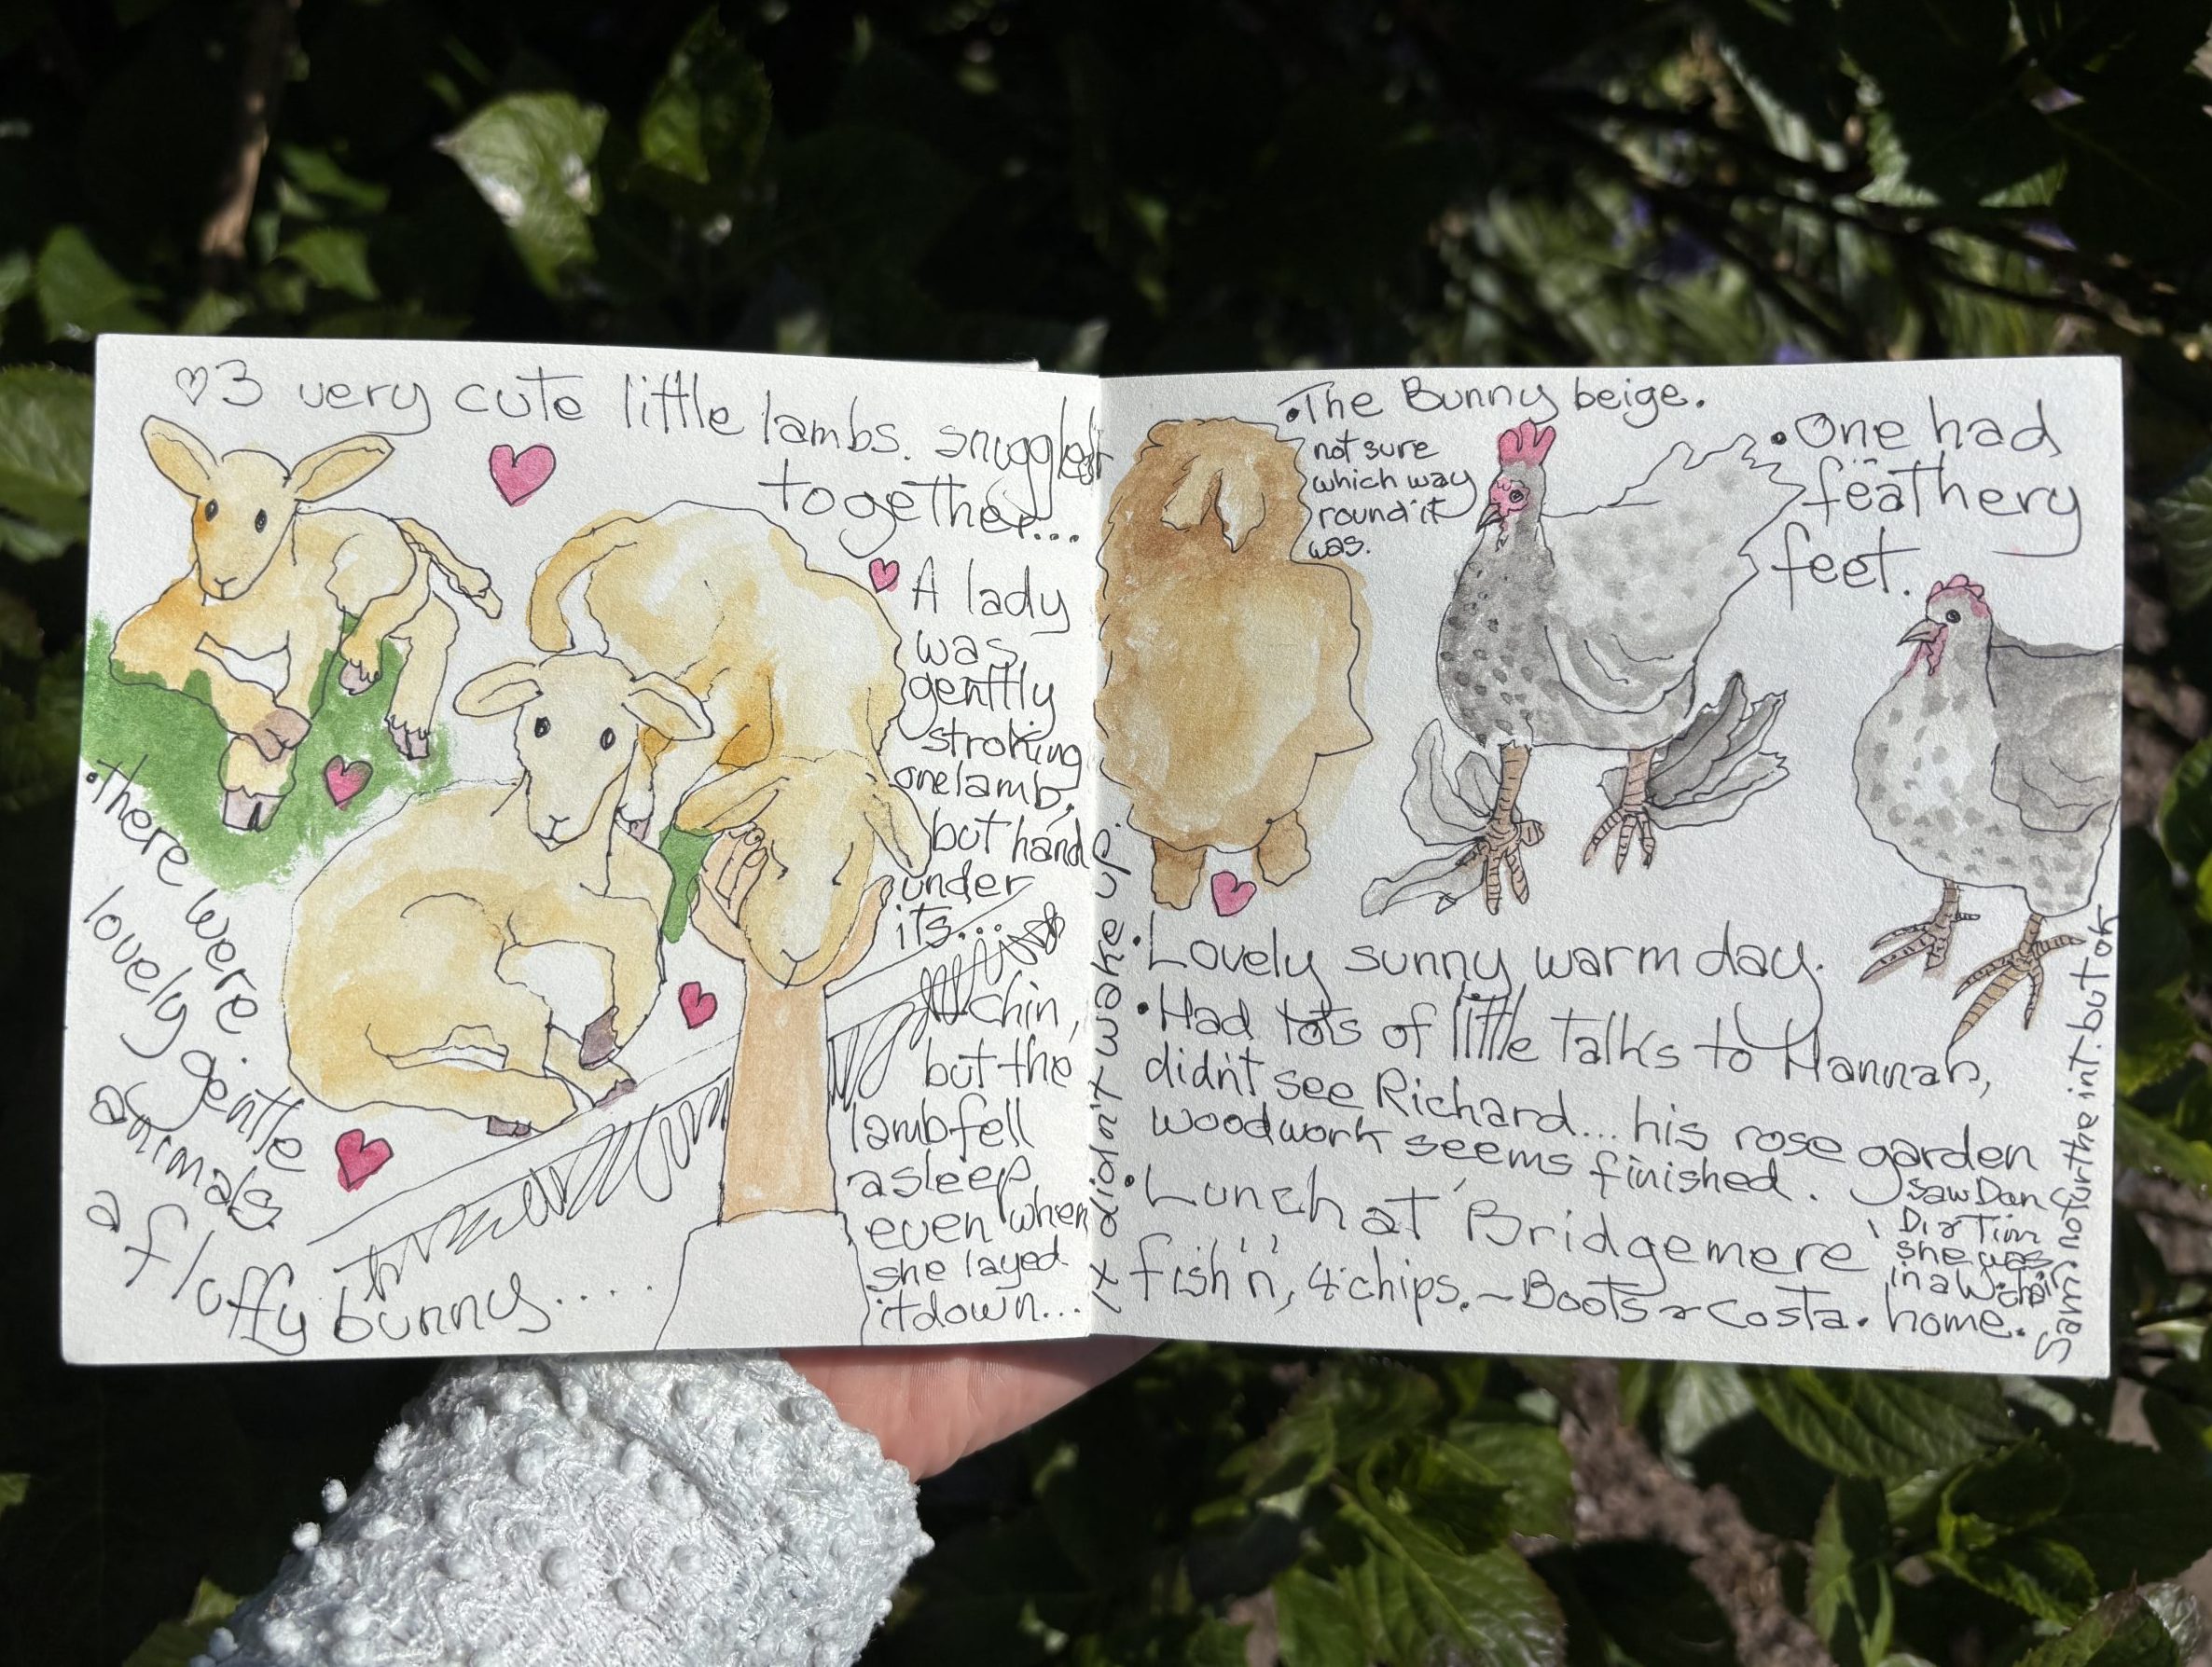 ♡3 very cute little lambs. snuggled
together...
♥ A lady
was
gently
stroking
one lamb,
but hand
under
its...
chin,
but the
lamb fell
asleep
even when
she layed
it down...
+ didn't wake up.
• There were
lovely gentle
animals.
a fluffy bunny.....
• The Bunny beige.
not sure
which way
round it
was.
• One had
feathery
feet.
• Lovely sunny warm day.
• Had lots of little talks to Hannah,
didn't see Richard... his rose garden
woodwork seems finished.
• Lunch at 'Bridgemere'
1x fish 'n', 4 chips. ~ Boots & Costa. home.
saw Dan
Di & Tim
she was
in a W.chair
Sam. not furthe int. but ok